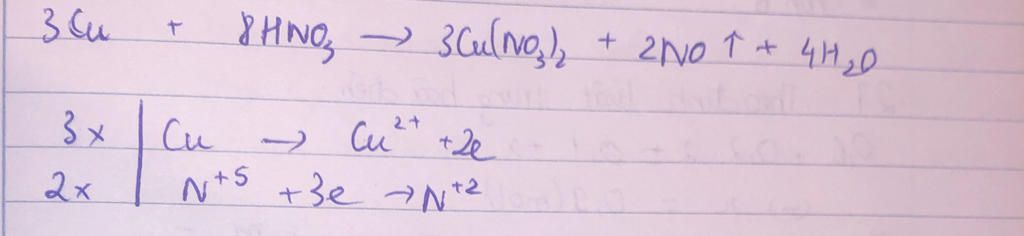 3Cu + 8HNO₃ → 3Cu(NO₃)₂ + 2NO ↑ + 4H₂O
3x | Cu → Cu²⁺ + 2e
2x | N⁺⁵ + 3e → N⁺²